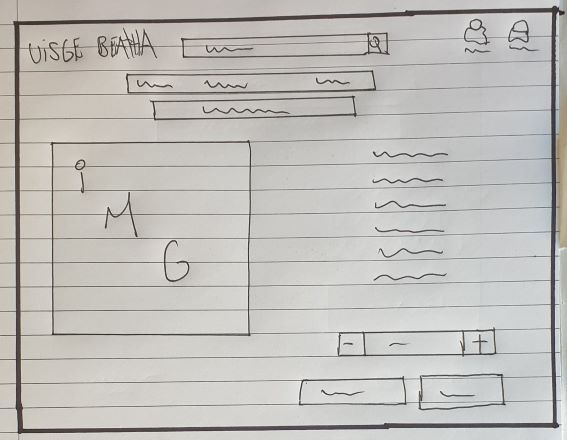 UISGE BEATHA
i
M
G
- +